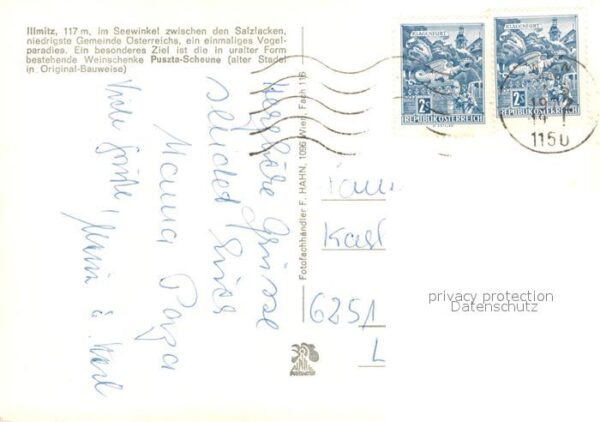 Illmitz, 117 m, im Seewinkel zwischen den Salzlacken,
niedrigste Gemeinde Österreichs, ein einmaliges Vogel-
paradies. Ein besonderes Ziel ist die in uralter Form
bestehende Weinschenke Puszta-Scheune (alter Stadel
in Original-Bauweise)
KLAGENFURT
2S
REPUBLIK ÖSTERREICH
KLAGENFURT
2S
REPUBLIK ÖSTERREICH
1150
Herzliche Grüsse
sendet Euch
Mama Papa
Viele Grüße,
Maria u. Karl
Fotofachhändler F. HAHN, 1096 Wien, Fach 116
Fam
Karl
6251
L
privacy protection
Datenschutz